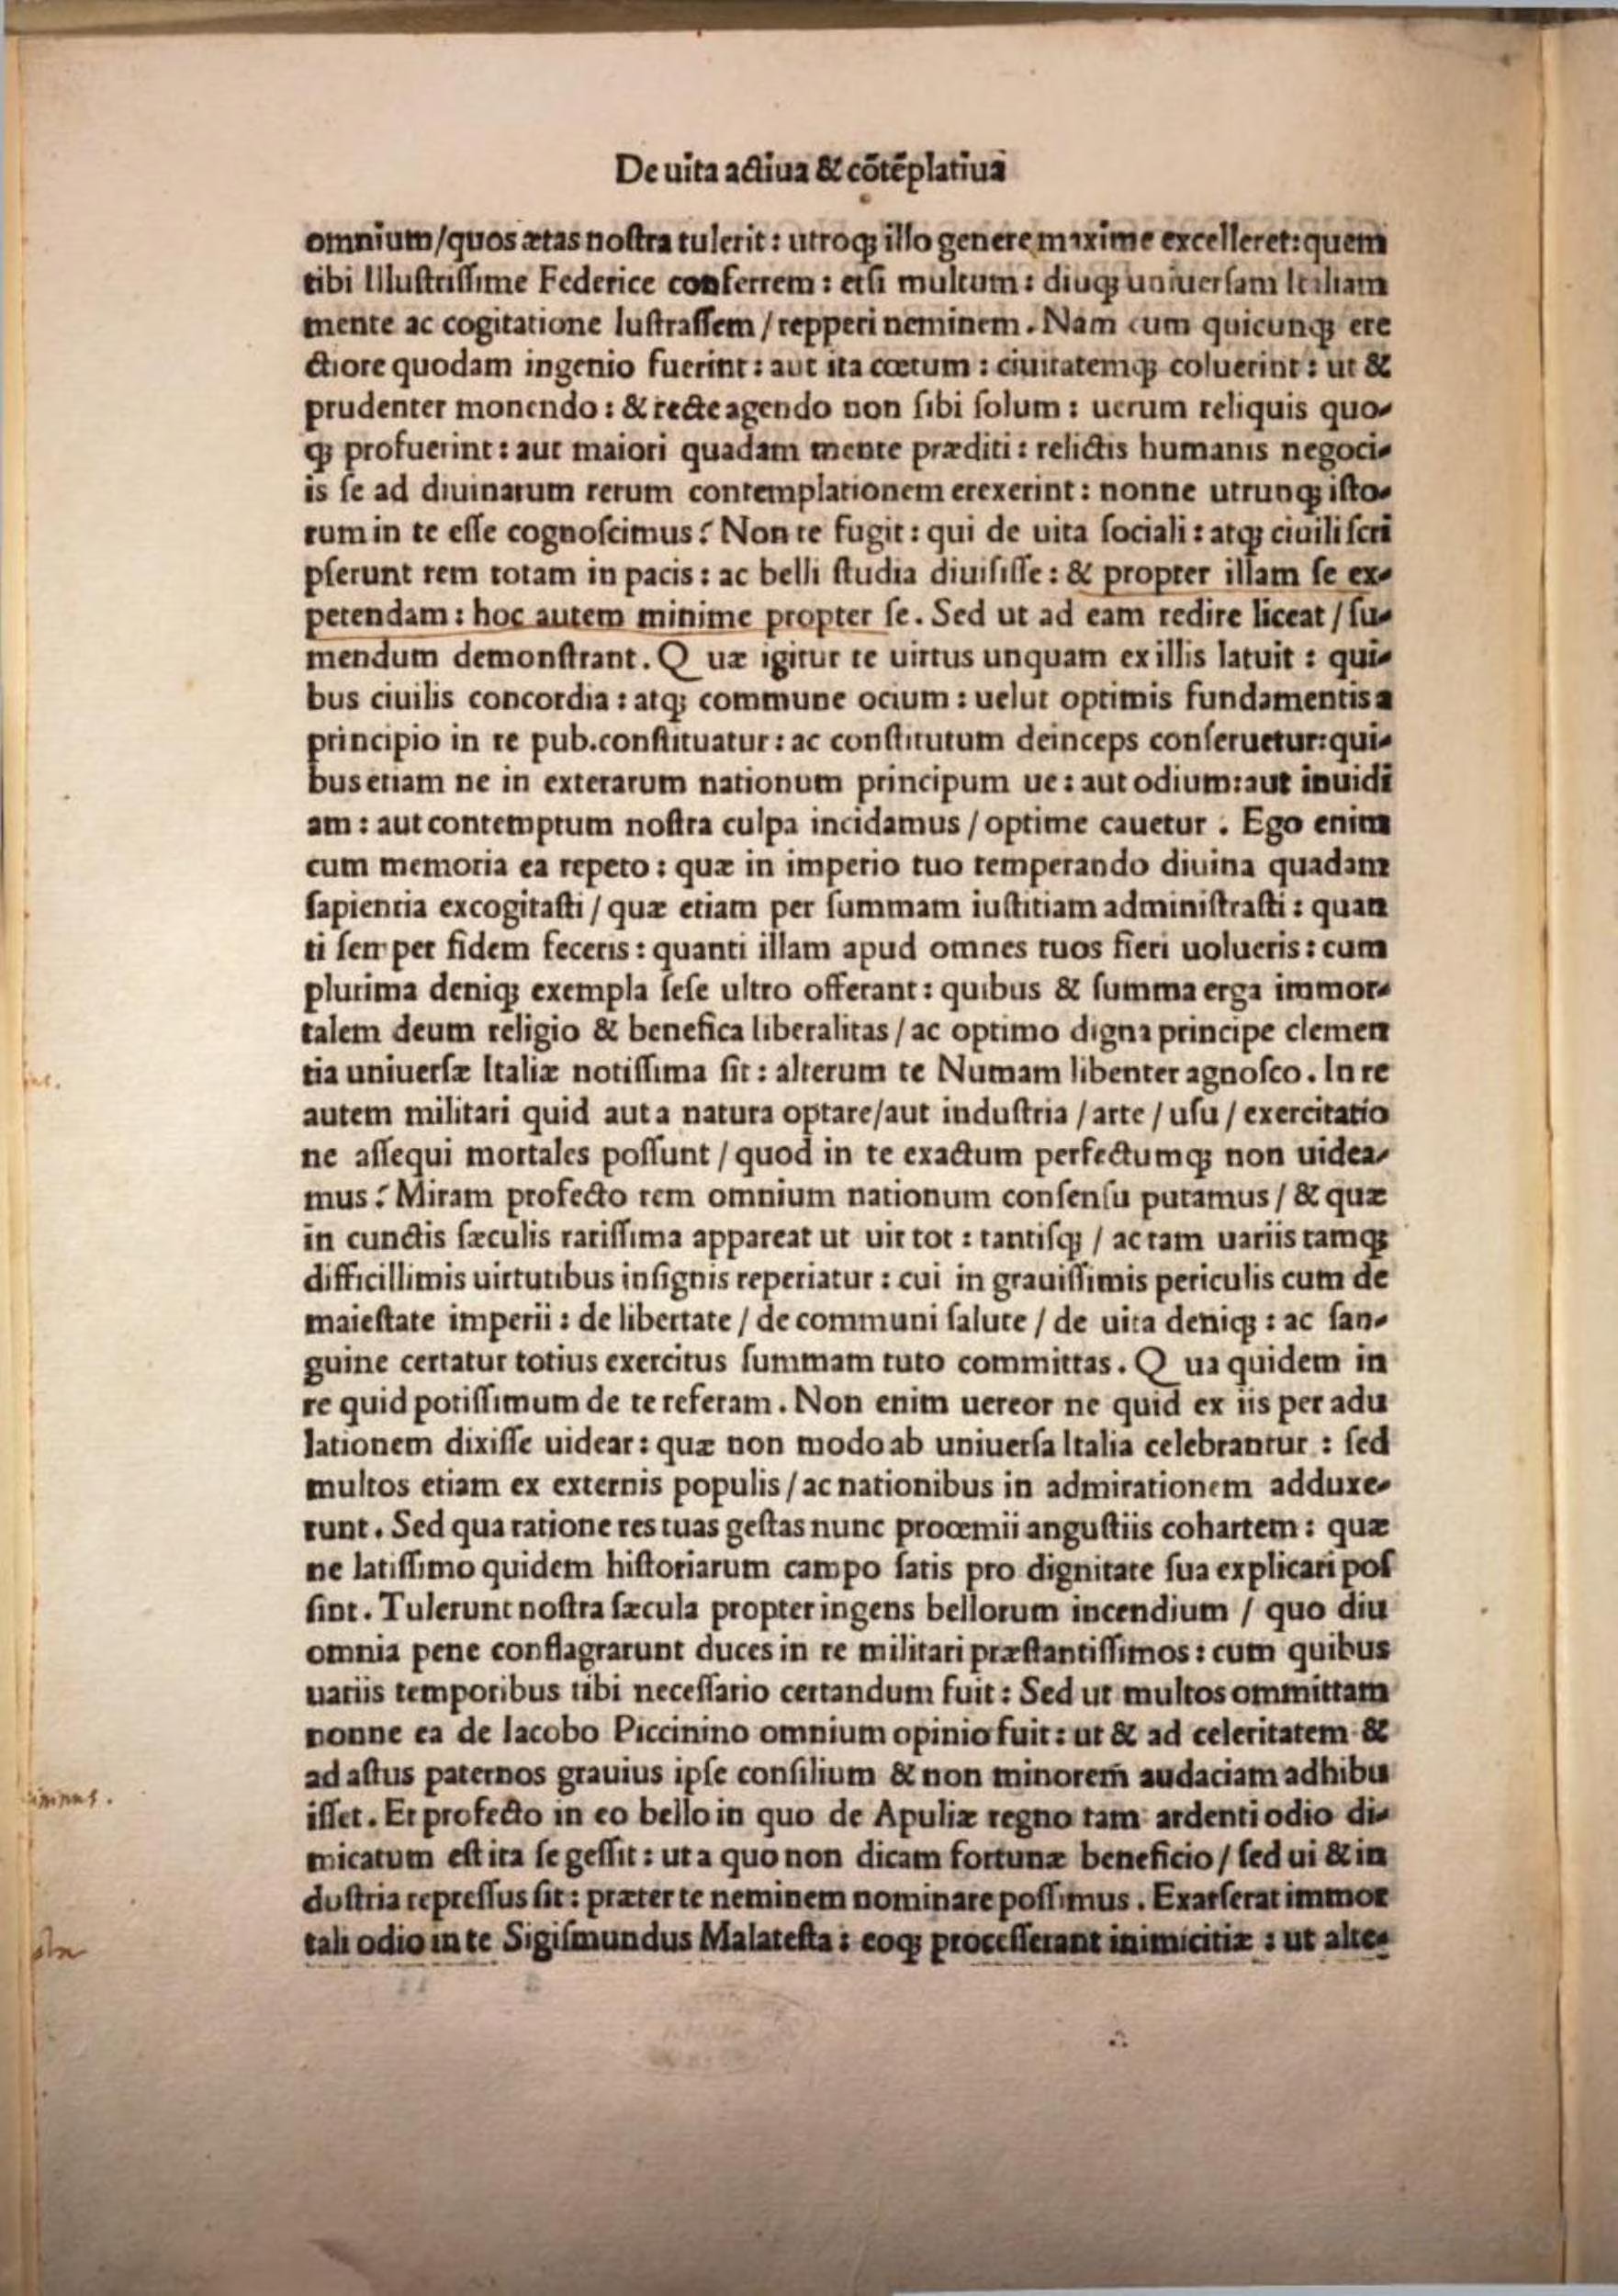 De uita actiua & cõtẽplatiua
omnium/quos ætas noſtra tulerit: utroqꝫ illo genere maxime excelleret:quem
tibi Illuſtriſſime Federice conferrem: etſi multum: diuqꝫ uniuerſam Italiam
mente ac cogitatione luſtraſſem/repperi neminem. Nam cum quicunqꝫ ere
ctiore quodam ingenio fuerint: aut ita cœtum: ciuitatemqꝫ coluerint: ut &
prudenter monendo: & recte agendo non ſibi ſolum: uerum reliquis quo-
qꝫ profuerint: aut maiori quadam mente præditi: relictis humanis negoci-
is ſe ad diuinarum rerum contemplationem erexerint: nonne utrunqꝫ iſto-
rum in te eſſe cognoſcimus? Non te fugit: qui de uita ſociali: atqꝫ ciuili ſcri
pſerunt rem totam in pacis: ac belli ſtudia diuiſiſſe: & propter illam ſe ex-
petendam: hoc autem minime propter ſe. Sed ut ad eam redire liceat/ſu-
mendum demonſtrant. Quæ igitur te uirtus unquam ex illis latuit: qui-
bus ciuilis concordia: atqꝫ commune ocium: uelut optimis fundamentis a
principio in re pub.conſtituatur: ac conſtitutum deinceps conſeruetur:qui-
bus etiam ne in exterarum nationum principum ue: aut odium:aut inuidi
am: aut contemptum noſtra culpa incidamus/optime cauetur. Ego enim
cum memoria ea repeto: quæ in imperio tuo temperando diuina quadam
ſapientia excogitaſti/quæ etiam per ſummam iuſtitiam adminiſtraſti: quan
ti ſemper fidem feceris: quanti illam apud omnes tuos fieri uolueris: cum
plurima deniqꝫ exempla ſeſe ultro offerant: quibus & ſumma erga immor-
talem deum religio & benefica liberalitas/ac optimo digna principe clemen
tia uniuerſæ Italiæ notiſſima ſit: alterum te Numam libenter agnoſco. In re
autem militari quid aut a natura optare/aut induſtria/arte/uſu/exercitatio
ne aſſequi mortales poſſunt/quod in te exactum perfectumqꝫ non uidea-
mus? Miram profecto rem omnium nationum conſenſu putamus/& quæ
in cunctis ſæculis rariſſima appareat ut uir tot: tantiſqꝫ/ac tam uariis tamqꝫ
difficillimis uirtutibus inſignis reperiatur: cui in grauiſſimis periculis cum de
maieſtate imperii: de libertate/de communi ſalute/de uita deniqꝫ: ac ſan-
guine certatur totius exercitus ſummam tuto committas. Qua quidem in
re quid potiſſimum de te referam. Non enim uereor ne quid ex iis per adu
lationem dixiſſe uidear: quæ non modo ab uniuerſa Italia celebrantur: ſed
multos etiam ex externis populis/ac nationibus in admirationem adduxe-
runt. Sed qua ratione res tuas geſtas nunc prooemii anguſtiis cohartem: quæ
ne latiſſimo quidem hiſtoriarum campo ſatis pro dignitate ſua explicari poſ
ſint. Tulerunt noſtra ſæcula propter ingens bellorum incendium/quo diu
omnia pene conflagrarunt duces in re militari præſtantiſſimos: cum quibus
uariis temporibus tibi neceſſario certandum fuit: Sed ut multos ommittam
nonne ea de Iacobo Piccinino omnium opinio fuit: ut & ad celeritatem &
ad aſtus paternos grauius ipſe conſilium & non minorem̃ audaciam adhibu
iſſet. Et profecto in eo bello in quo de Apuliæ regno tam ardenti odio di-
micatum eſt ita ſe geſſit: ut a quo non dicam fortunæ beneficio/ſed ui & in
duſtria repreſſus ſit: præter te neminem nominare poſſimus. Exarſerat immor
tali odio in te Sigiſmundus Malateſta: eoqꝫ proceſſerant inimicitiæ: ut alte-